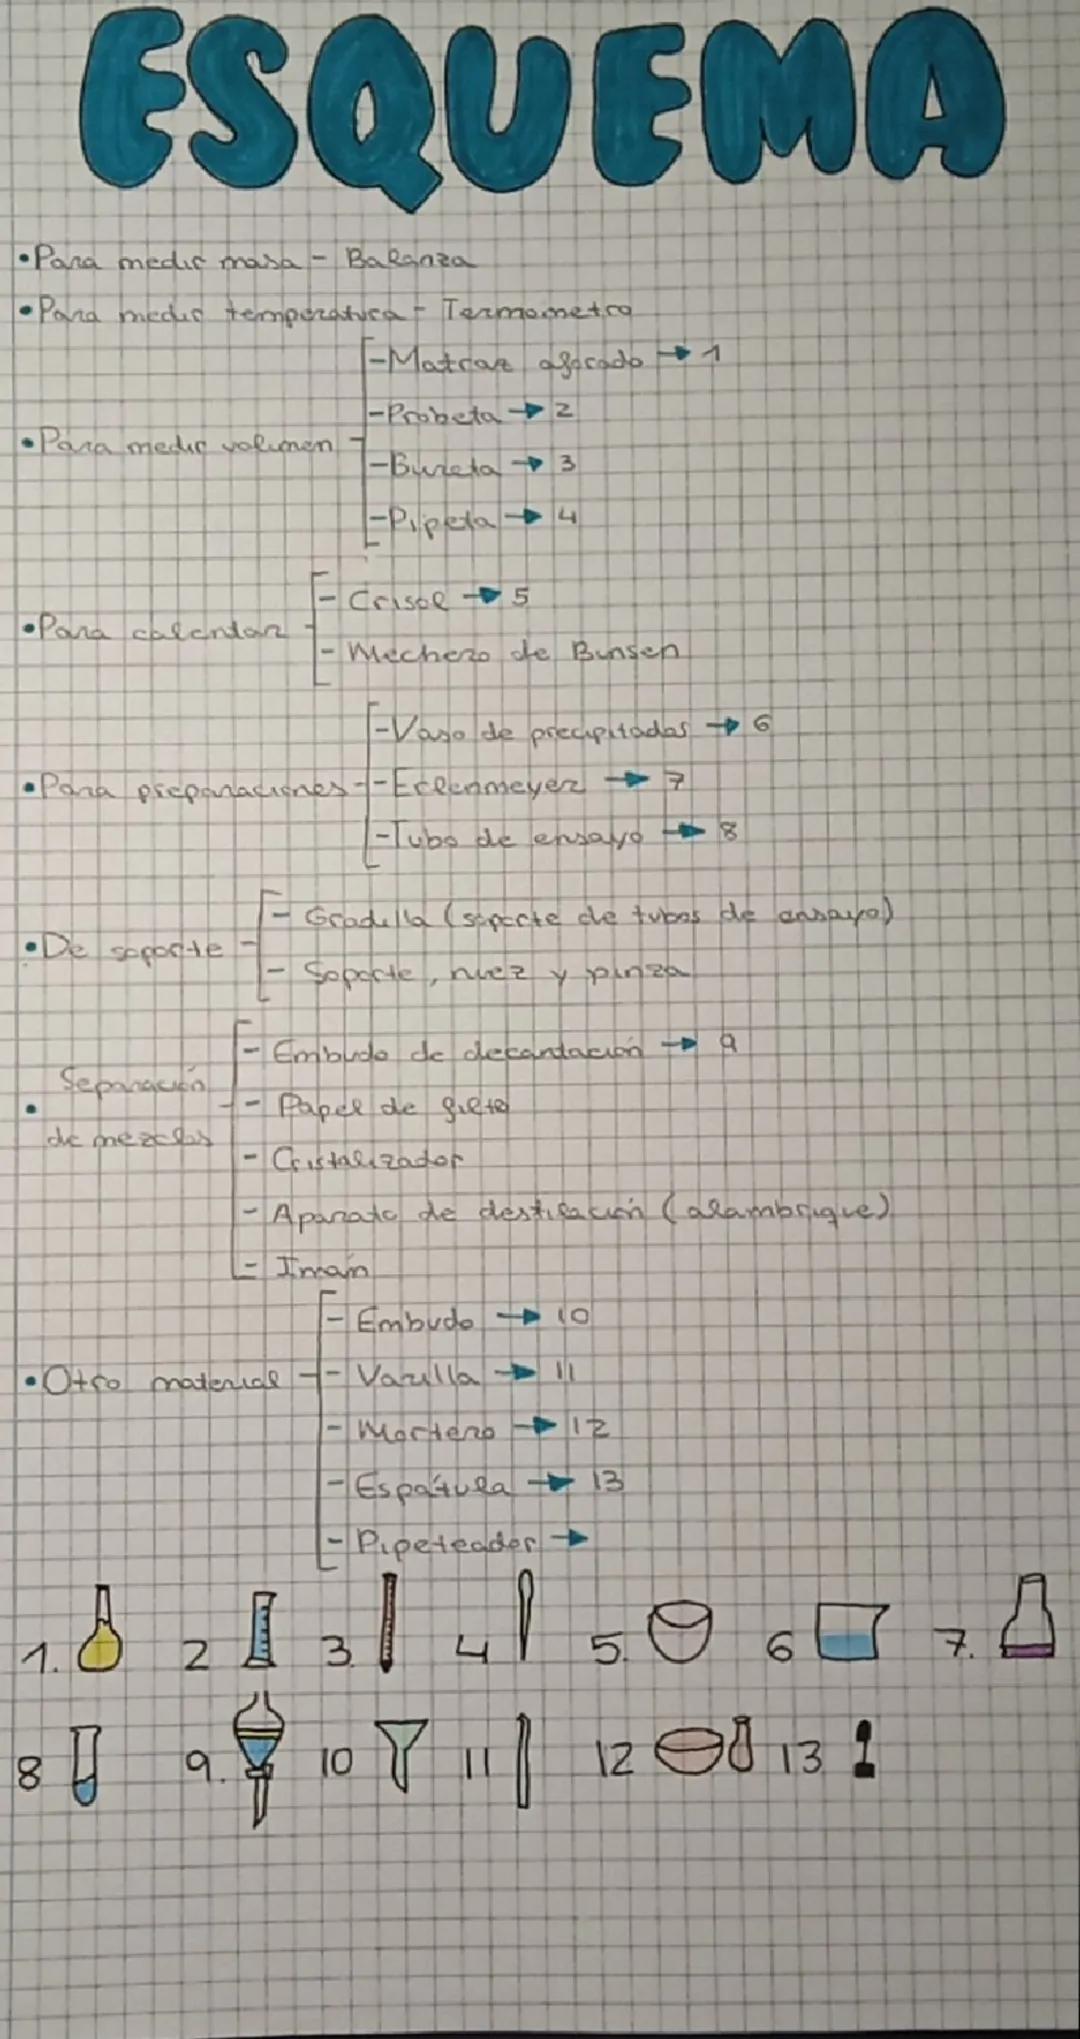 ESQUEMA
• Para medir masa - Balanza
• Para medir temperatura - Termometro
- Matraz aforado → 1
- Probeta → 2
• Para medir volumen
- Bureta → 3
- Pipeta → 4
- Crisol → 5
• Para calentar
- Mechero de Bunsen
- Vaso de precipitados → 6
• Para preparaciones - Erlenmeyer → 7
- Tubo de ensayo → 8
- Gradilla (soporte de tubos de ensayo)
• De soporte
- Soporte, nuez y pinza
- Embudo de decantación → 9
• Separación
- Papel de filtro
de mezclas
- Cristalizador
- Aparato de destilación (alambrique)
- Imán
- Embudo → 10
• Otro material - Varilla → 11
- Mortero → 12
- Espátula → 13
- Pipeteador →
1. 2 3. 4 5. 6 7.
8 9. 10 11 12 13